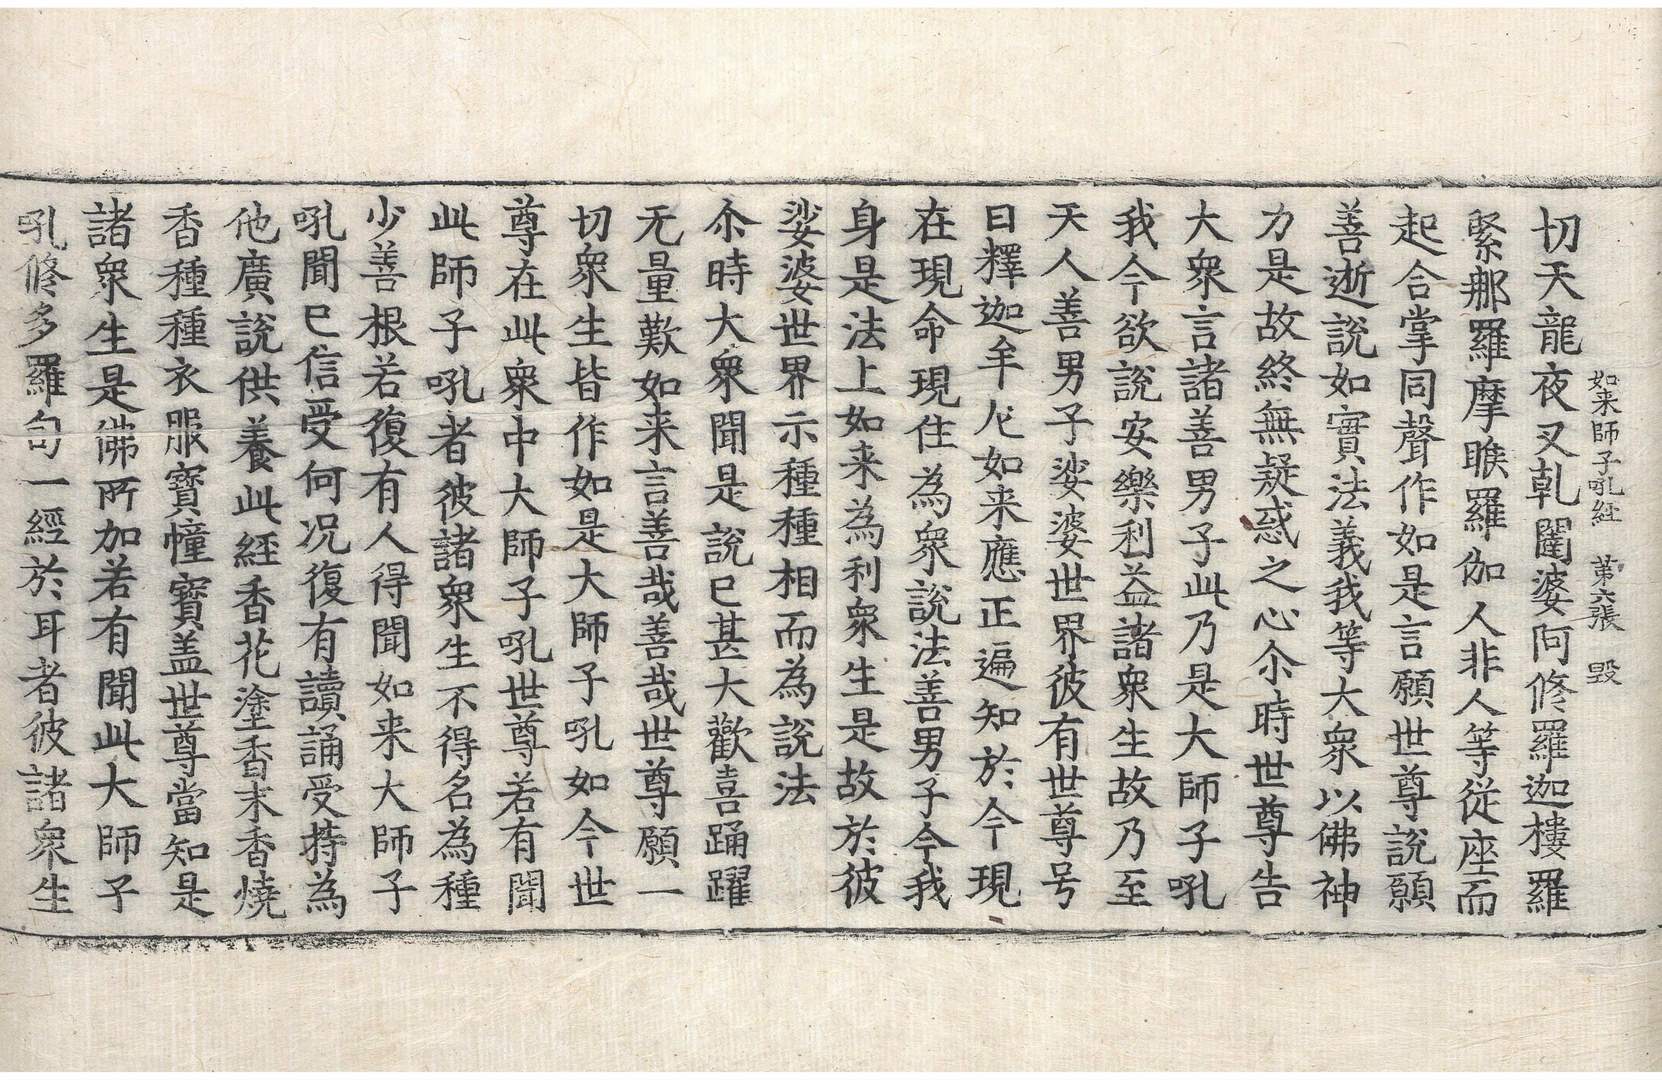 如来師子吼経　第六張　毀
切天龍夜叉乹闥婆阿修羅迦樓羅
緊那羅摩睺羅伽人非人等従座而
起合掌同聲作如是言願世尊說願
善逝說如實法義我等大衆以佛神
力是故終無疑惑之心尒時世尊告
大衆言諸善男子此乃是大師子吼
我今欲說安樂利益諸衆生故乃至
天人善男子娑婆世界彼有世尊号
曰釋迦牟尼如来應正遍知於今現
在現命現住為衆說法善男子今我
身是法上如来為利衆生是故於彼
娑婆世界示種種相而為說法
尒時大衆聞是說已甚大歡喜踊躍
无量歎如来言善哉善哉世尊願一
切衆生皆作如是大師子吼如今世
尊在此衆中大師子吼世尊若有聞
此師子吼者彼諸衆生不得名為種
少善根若復有人得聞如来大師子
吼聞已信受何况復有讀誦受持為
他廣說供養此経香花塗香末香燒
香種種衣服寶幢寶盖世尊當知是
諸衆生是佛所加若有聞此大師子
吼修多羅句一經於耳者彼諸衆生